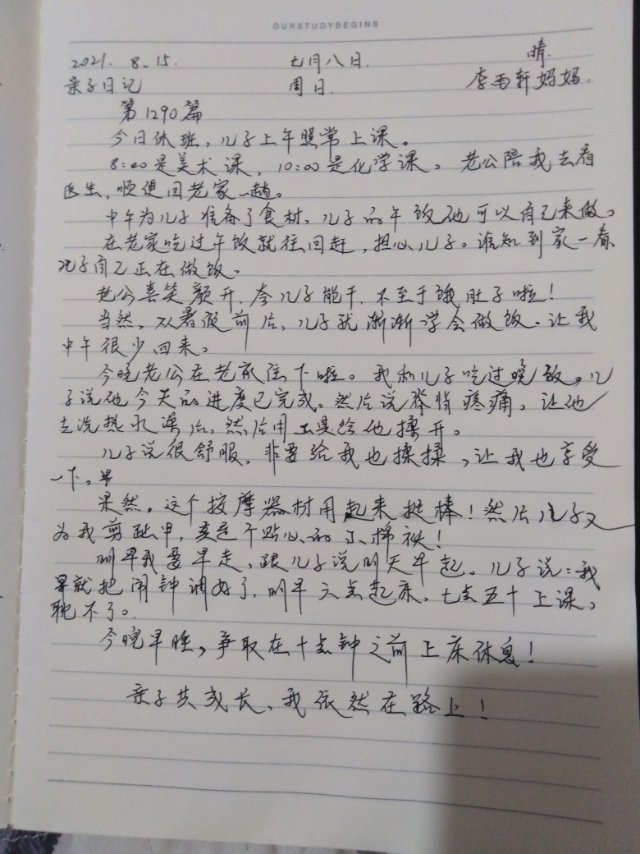 OURSTUDYBEGINS
2021.8.15. 七月八日. 晴.
亲子日记 周日. 李雨轩妈妈.
第1290篇
今日休班,儿子上午照常上课。
8:00是美术课,10:00是化学课。老公陪我去看
医生,顺便回老家一趟。
中午为儿子准备了食材,儿子的午饭他可以自己来做。
在老家吃过午饭就往回赶,担心儿子。谁知到家一看,
儿子自己正在做饭。
老公喜笑颜开,夸儿子能干,不至于饿肚子啦!
当然,从暑假前后,儿子就渐渐学会做饭。让我
中午很少回来。
今晚老公在老家住下啦。我和儿子吃过晚饭,儿
子说他今天的进度已完成。然后说脊背疼痛,让他
去洗热水澡后,然后用工具给他揉开。
儿子说很舒服,非要给我也揉揉,让我也享受
一下。
果然,这个按摩器材用起来挺棒!然后儿子又
为我剪趾甲,真是个贴心的小棉袄!
明早我要早走,跟儿子说明天早起。儿子说:我
早就把闹钟调好了,明早六点起床,七点五十上课,
耽不了。
今晚早睡,争取在十点钟之前上床休息!
亲子共成长,我依然在路上!